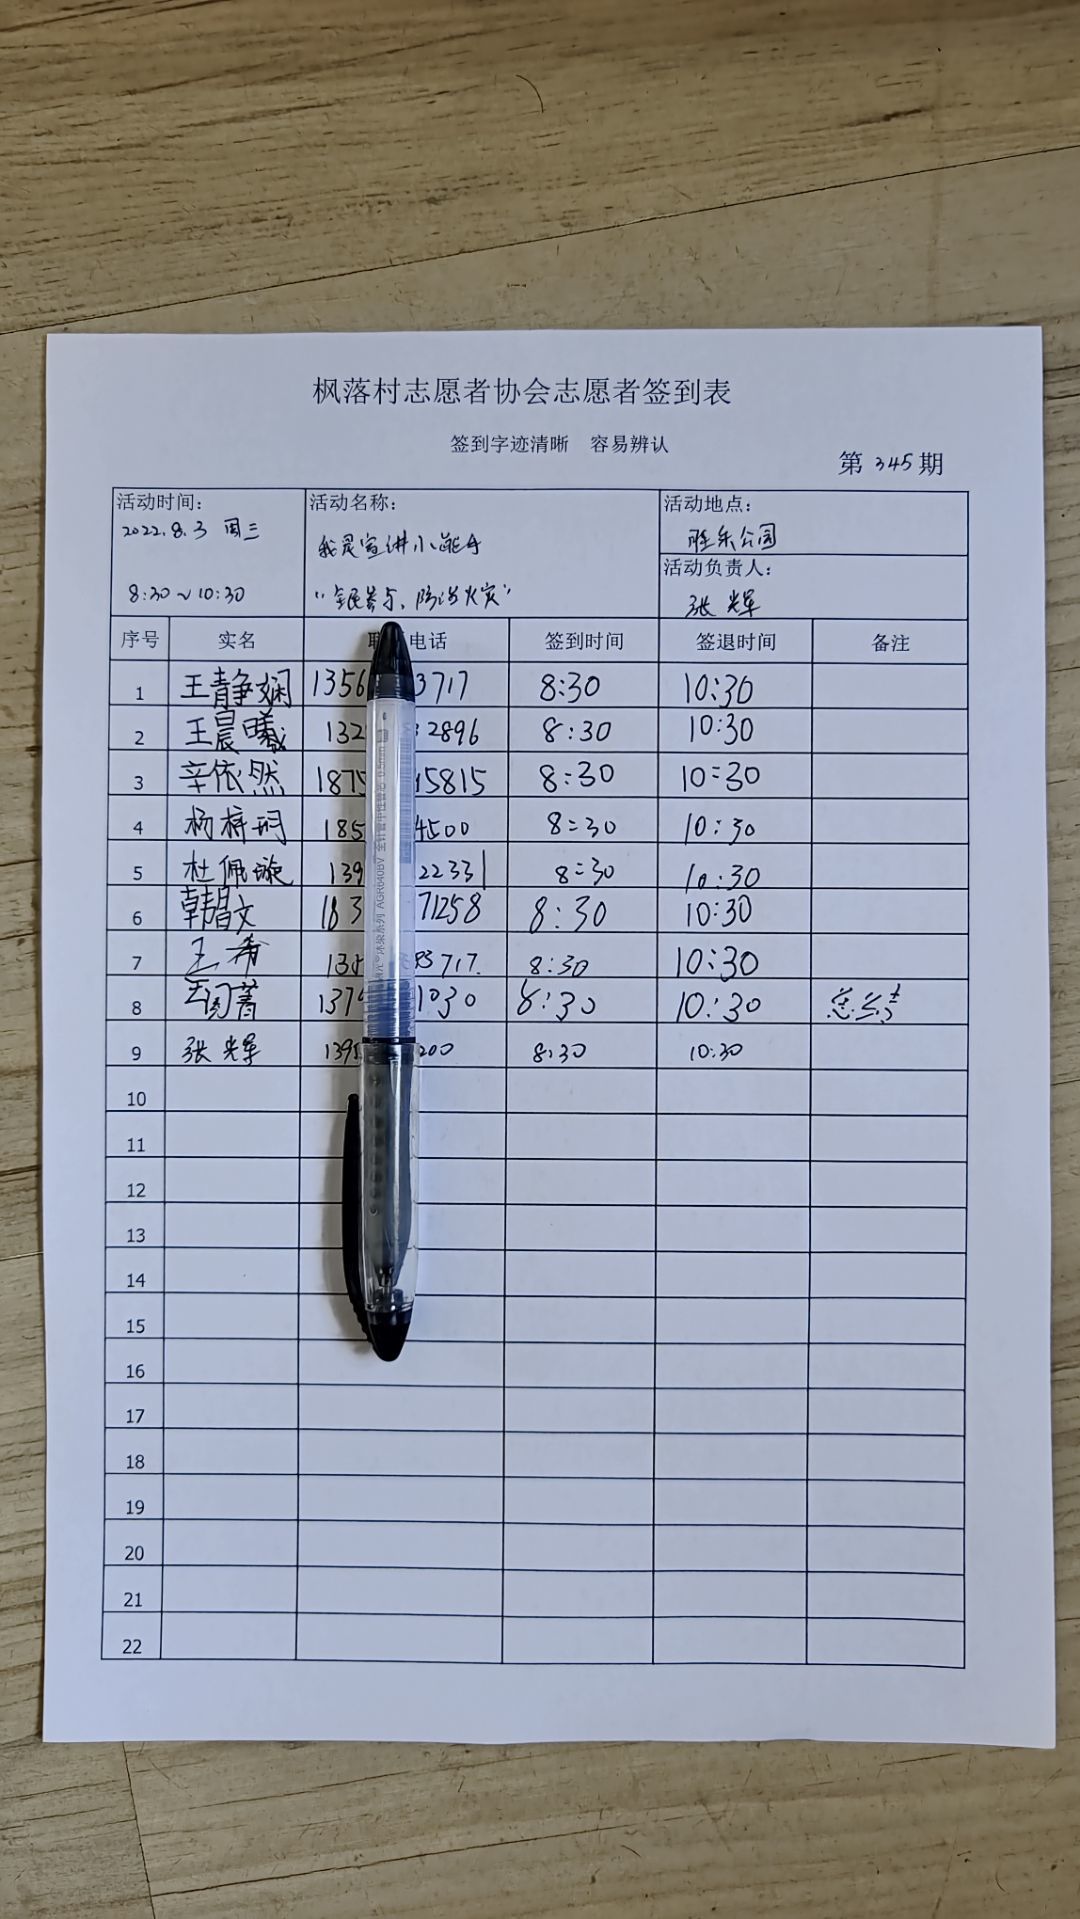 枫落村志愿者协会志愿者签到表
签到字迹清晰 容易辨认
第 345 期
活动时间: 活动名称: 活动地点:
2022.8.3 周三
我是宣讲小能手
胜乐公园
活动负责人:
8:30~10:30
"全民参与、防治火灾"
张辉
序号 实名 联 电话 签到时间 签退时间 备注
1 王静娴 1356 3717 8:30 10:30
2 王晨曦 132 2896 8:30 10:30
3 辛依然 1875 15815 8:30 10:30
4 杨梓玥 185 4500 8:30 10:30
5 杜佩璇 139 22331 8:30 10:30
6 韩昌文 183 71258 8:30 10:30
7 王希 138 93717. 8:30 10:30
8 1379 1030 8:30 10:30 总结
9 张辉 1395 200 8:30 10:30
10
11
12
13
14
15
16
17
18
19
20
21
22